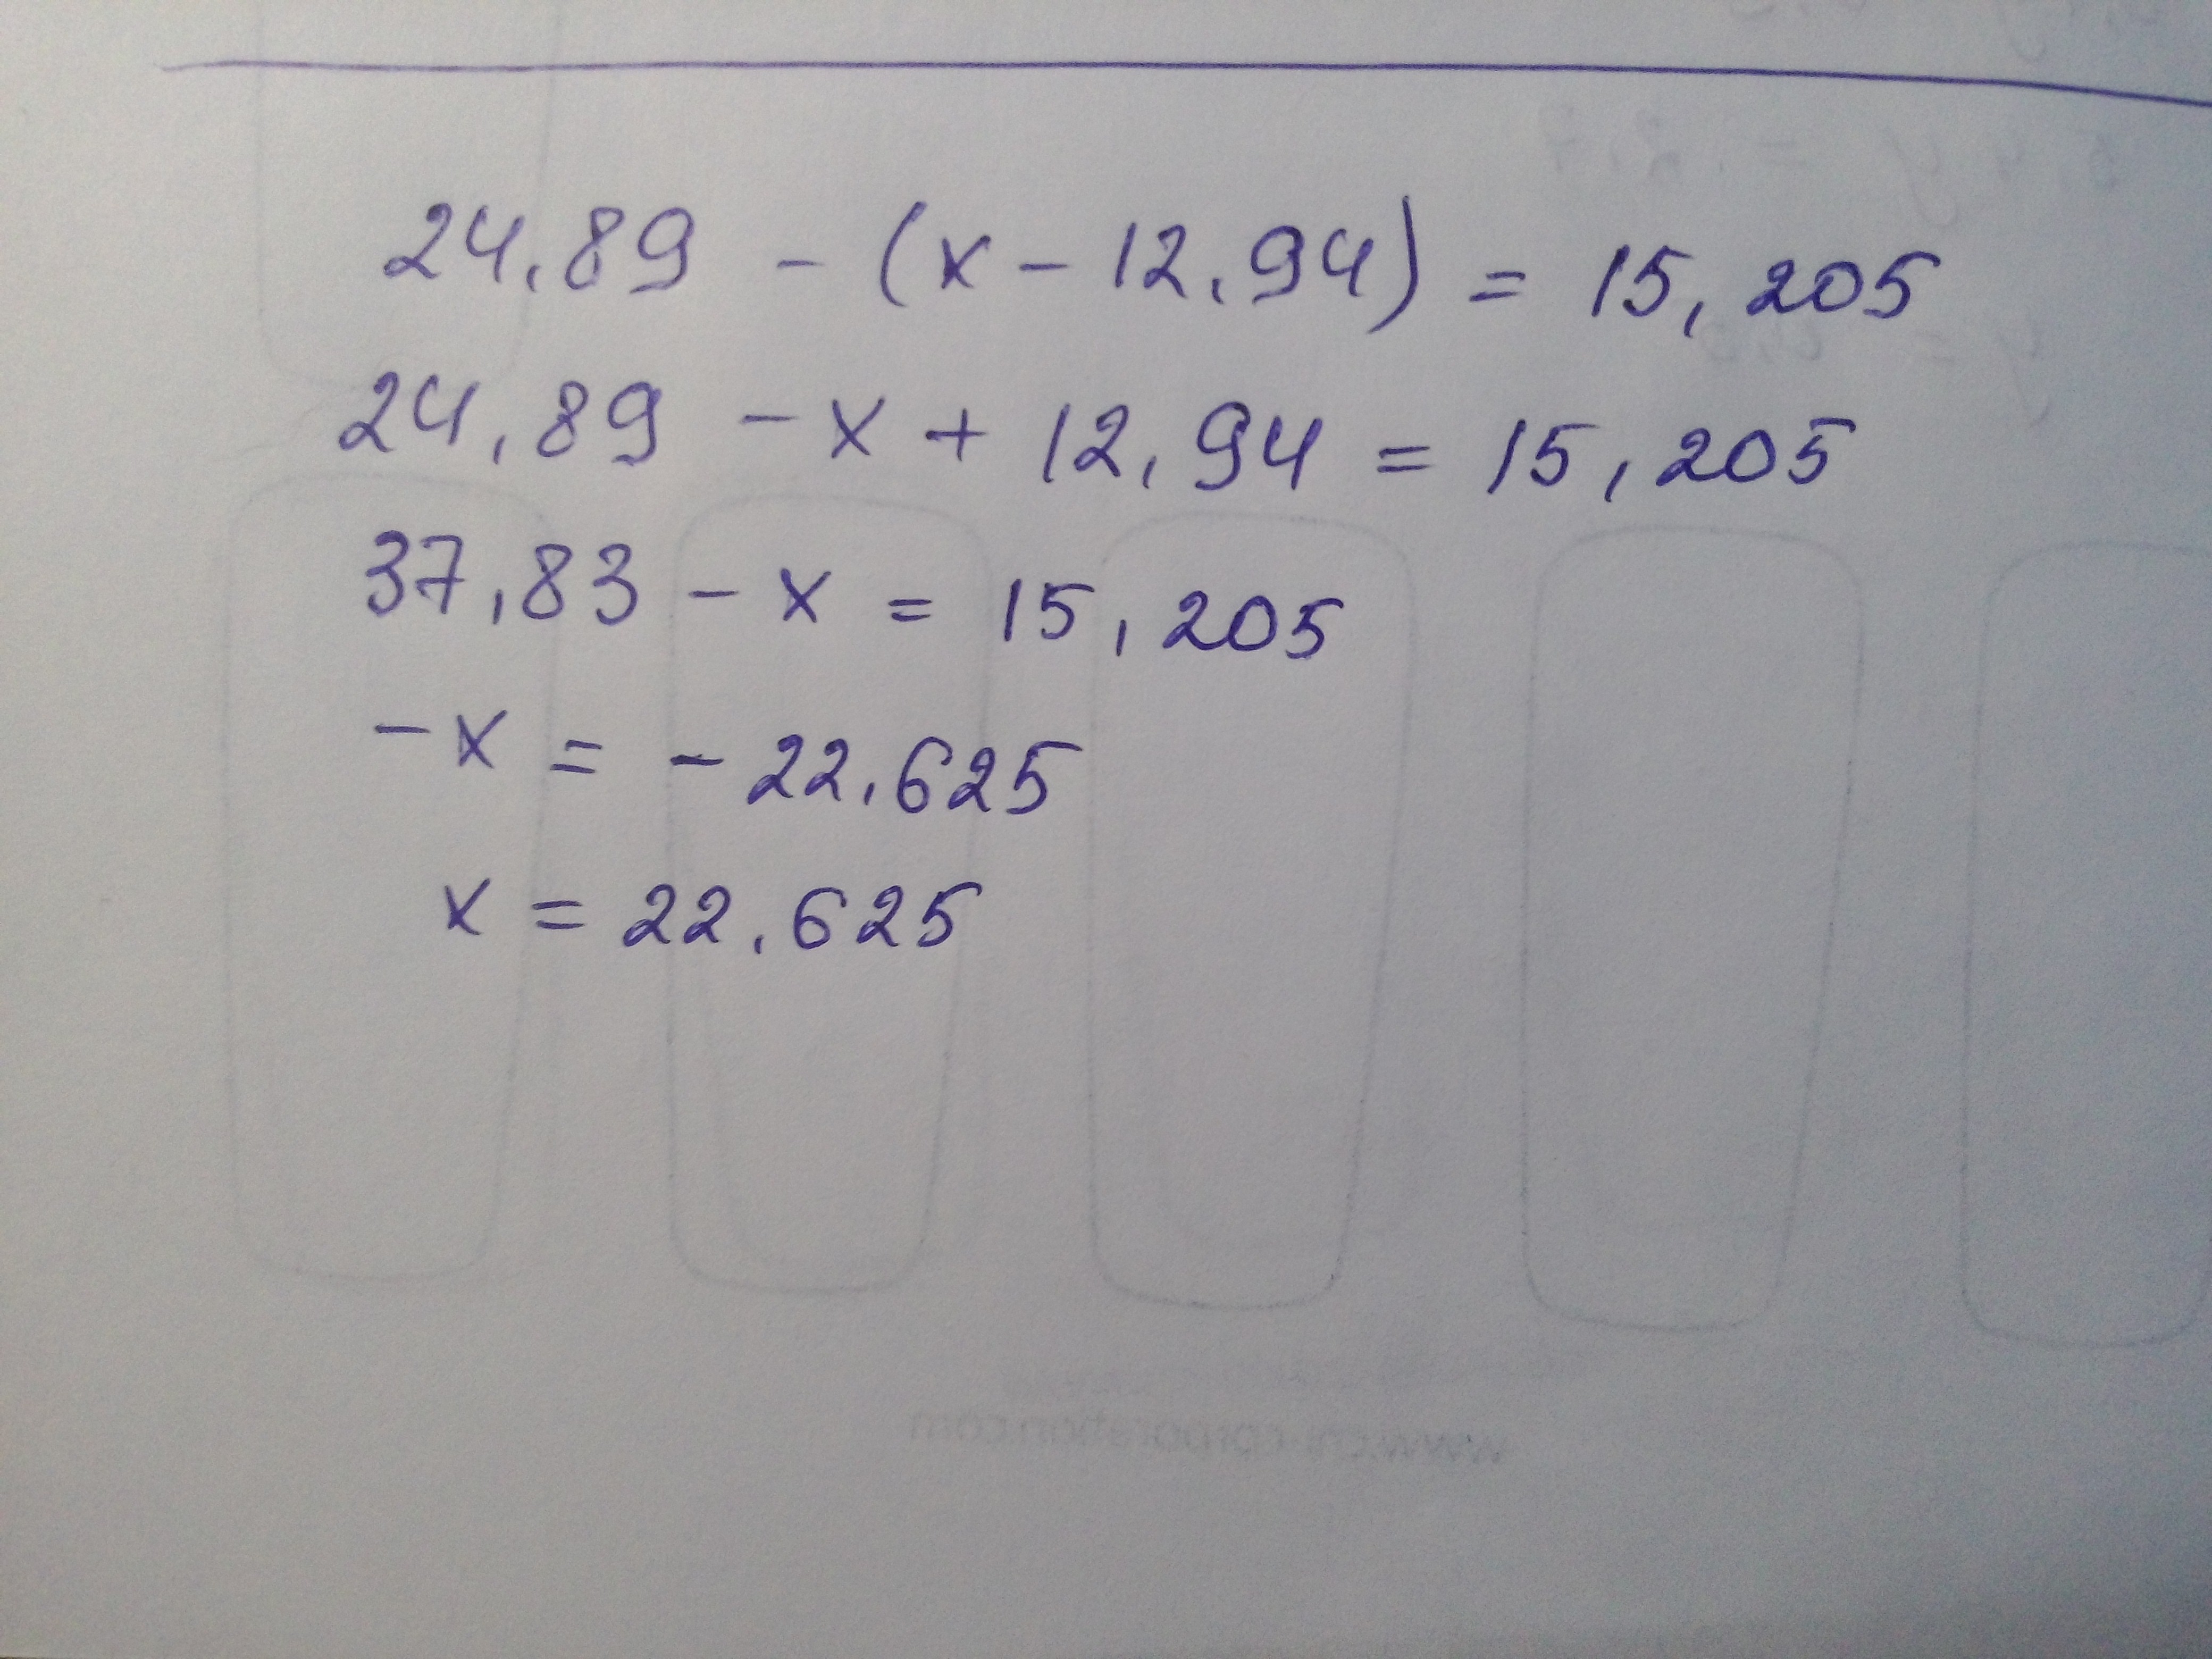 24,89 - (x - 12,94) = 15,205
24,89 - x + 12,94 = 15,205
37,83 - x = 15,205
- x = - 22,625
x = 22,625